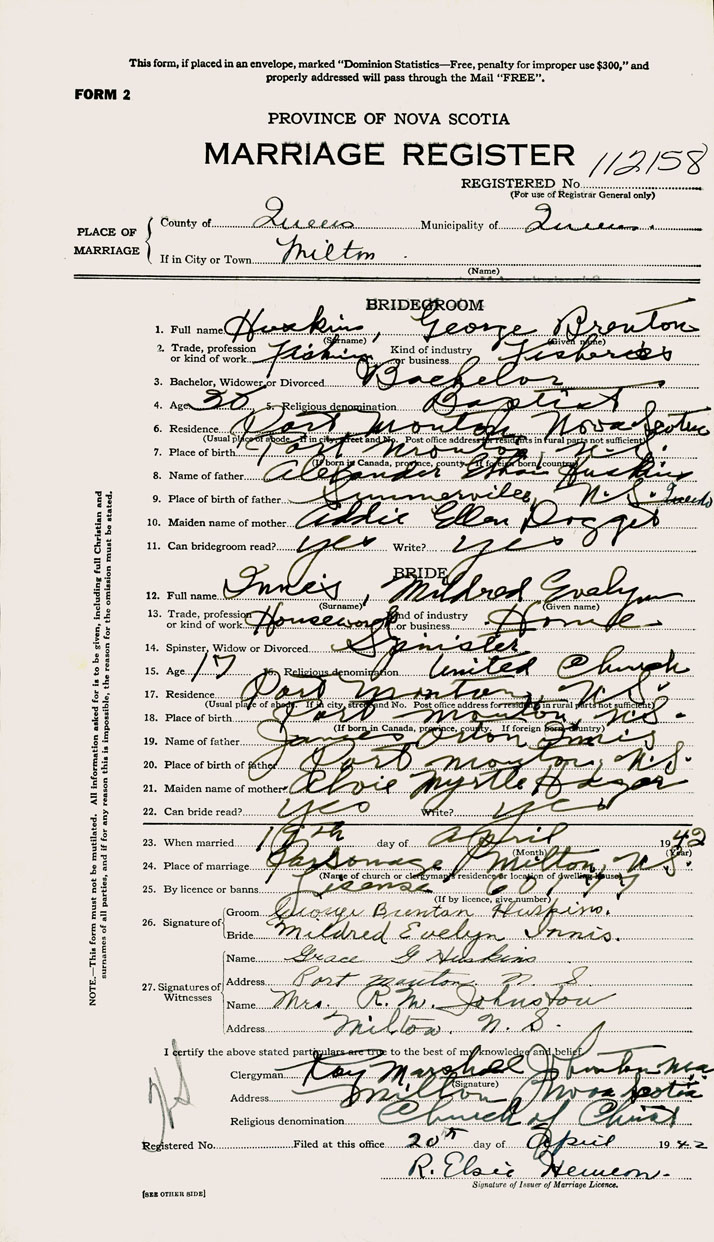 This form, if placed in an envelope, marked "Dominion Statistics—Free, penalty for improper use $300," and
properly addressed will pass through the Mail "FREE".
FORM 2
PROVINCE OF NOVA SCOTIA
MARRIAGE REGISTER 112158
REGISTERED No.
(For use of Registrar General only)
PLACE OF MARRIAGE
County of Queens Municipality of Queens.
If in City or Town Milton
(Name)
BRIDEGROOM
1. Full name Huskins, George Brenton
(Surname) (Given name)
2. Trade, profession or kind of work Fishing Kind of industry or business Fisheries
3. Bachelor, Widower or Divorced Bachelor
4. Age 5. Religious denomination Baptist
6. Residence Port Mouton, Nova Scotia
(Usual place of abode. If in city, street and No. Post office address for residents in rural parts not sufficient)
7. Place of birth Port Mouton, N.S.
(If born in Canada, province, county. If foreign born country)
8. Name of father Alexander Huskins
9. Place of birth of father Summerville, N.S. Queens
10. Maiden name of mother Addie Ellen Dogget
11. Can bridegroom read? yes Write? yes
BRIDE
12. Full name Innis, Mildred Evelyn
(Surname) (Given name)
13. Trade, profession or kind of work Housework Kind of industry or business Home
14. Spinster, Widow or Divorced Spinister
15. Age 17 16. Religious denomination United Church
17. Residence Port Mouton, N.S.
(Usual place of abode. If in city, street and No. Post office address for residents in rural parts not sufficient)
18. Place of birth Port Mouton, N.S.
(If born in Canada, province, county. If foreign born country)
19. Name of father James Orton Innis
20. Place of birth of father Port Mouton, N.S.
21. Maiden name of mother Myrtle
22. Can bride read? yes Write? yes
23. When married 19th day of April 1942
(Month) (Year)
24. Place of marriage Parsonage, Milton, N.S.
(Name of church or clergyman's residence or location of dwelling house)
25. By licence or banns License
(If by licence, give number)
26. Signature of
Groom George Brenton Huskins.
Bride Mildred Evelyn Innis.
27. Signatures of Witnesses
Name Grace G Huskins
Address Port Mouton N S
Name Mrs. R. M. Johnston
Address Milton, N. S.
I certify the above stated particulars are true to the best of my knowledge and belief
Clergyman Ray Marshall Johnston
(Signature)
Address Milton, Nova Scotia
Religious denomination Church of Christ
Registered No. Filed at this office 20th day of April 1942
R. Elsie Hemeon.
Signature of Issuer of Marriage Licence.
[SEE OTHER SIDE]
NOTE.—This form must not be mutilated. All information asked for is to be given, including full Christian and
surnames of all parties, and if for any reason this is impossible, the reason for the omission must be stated.